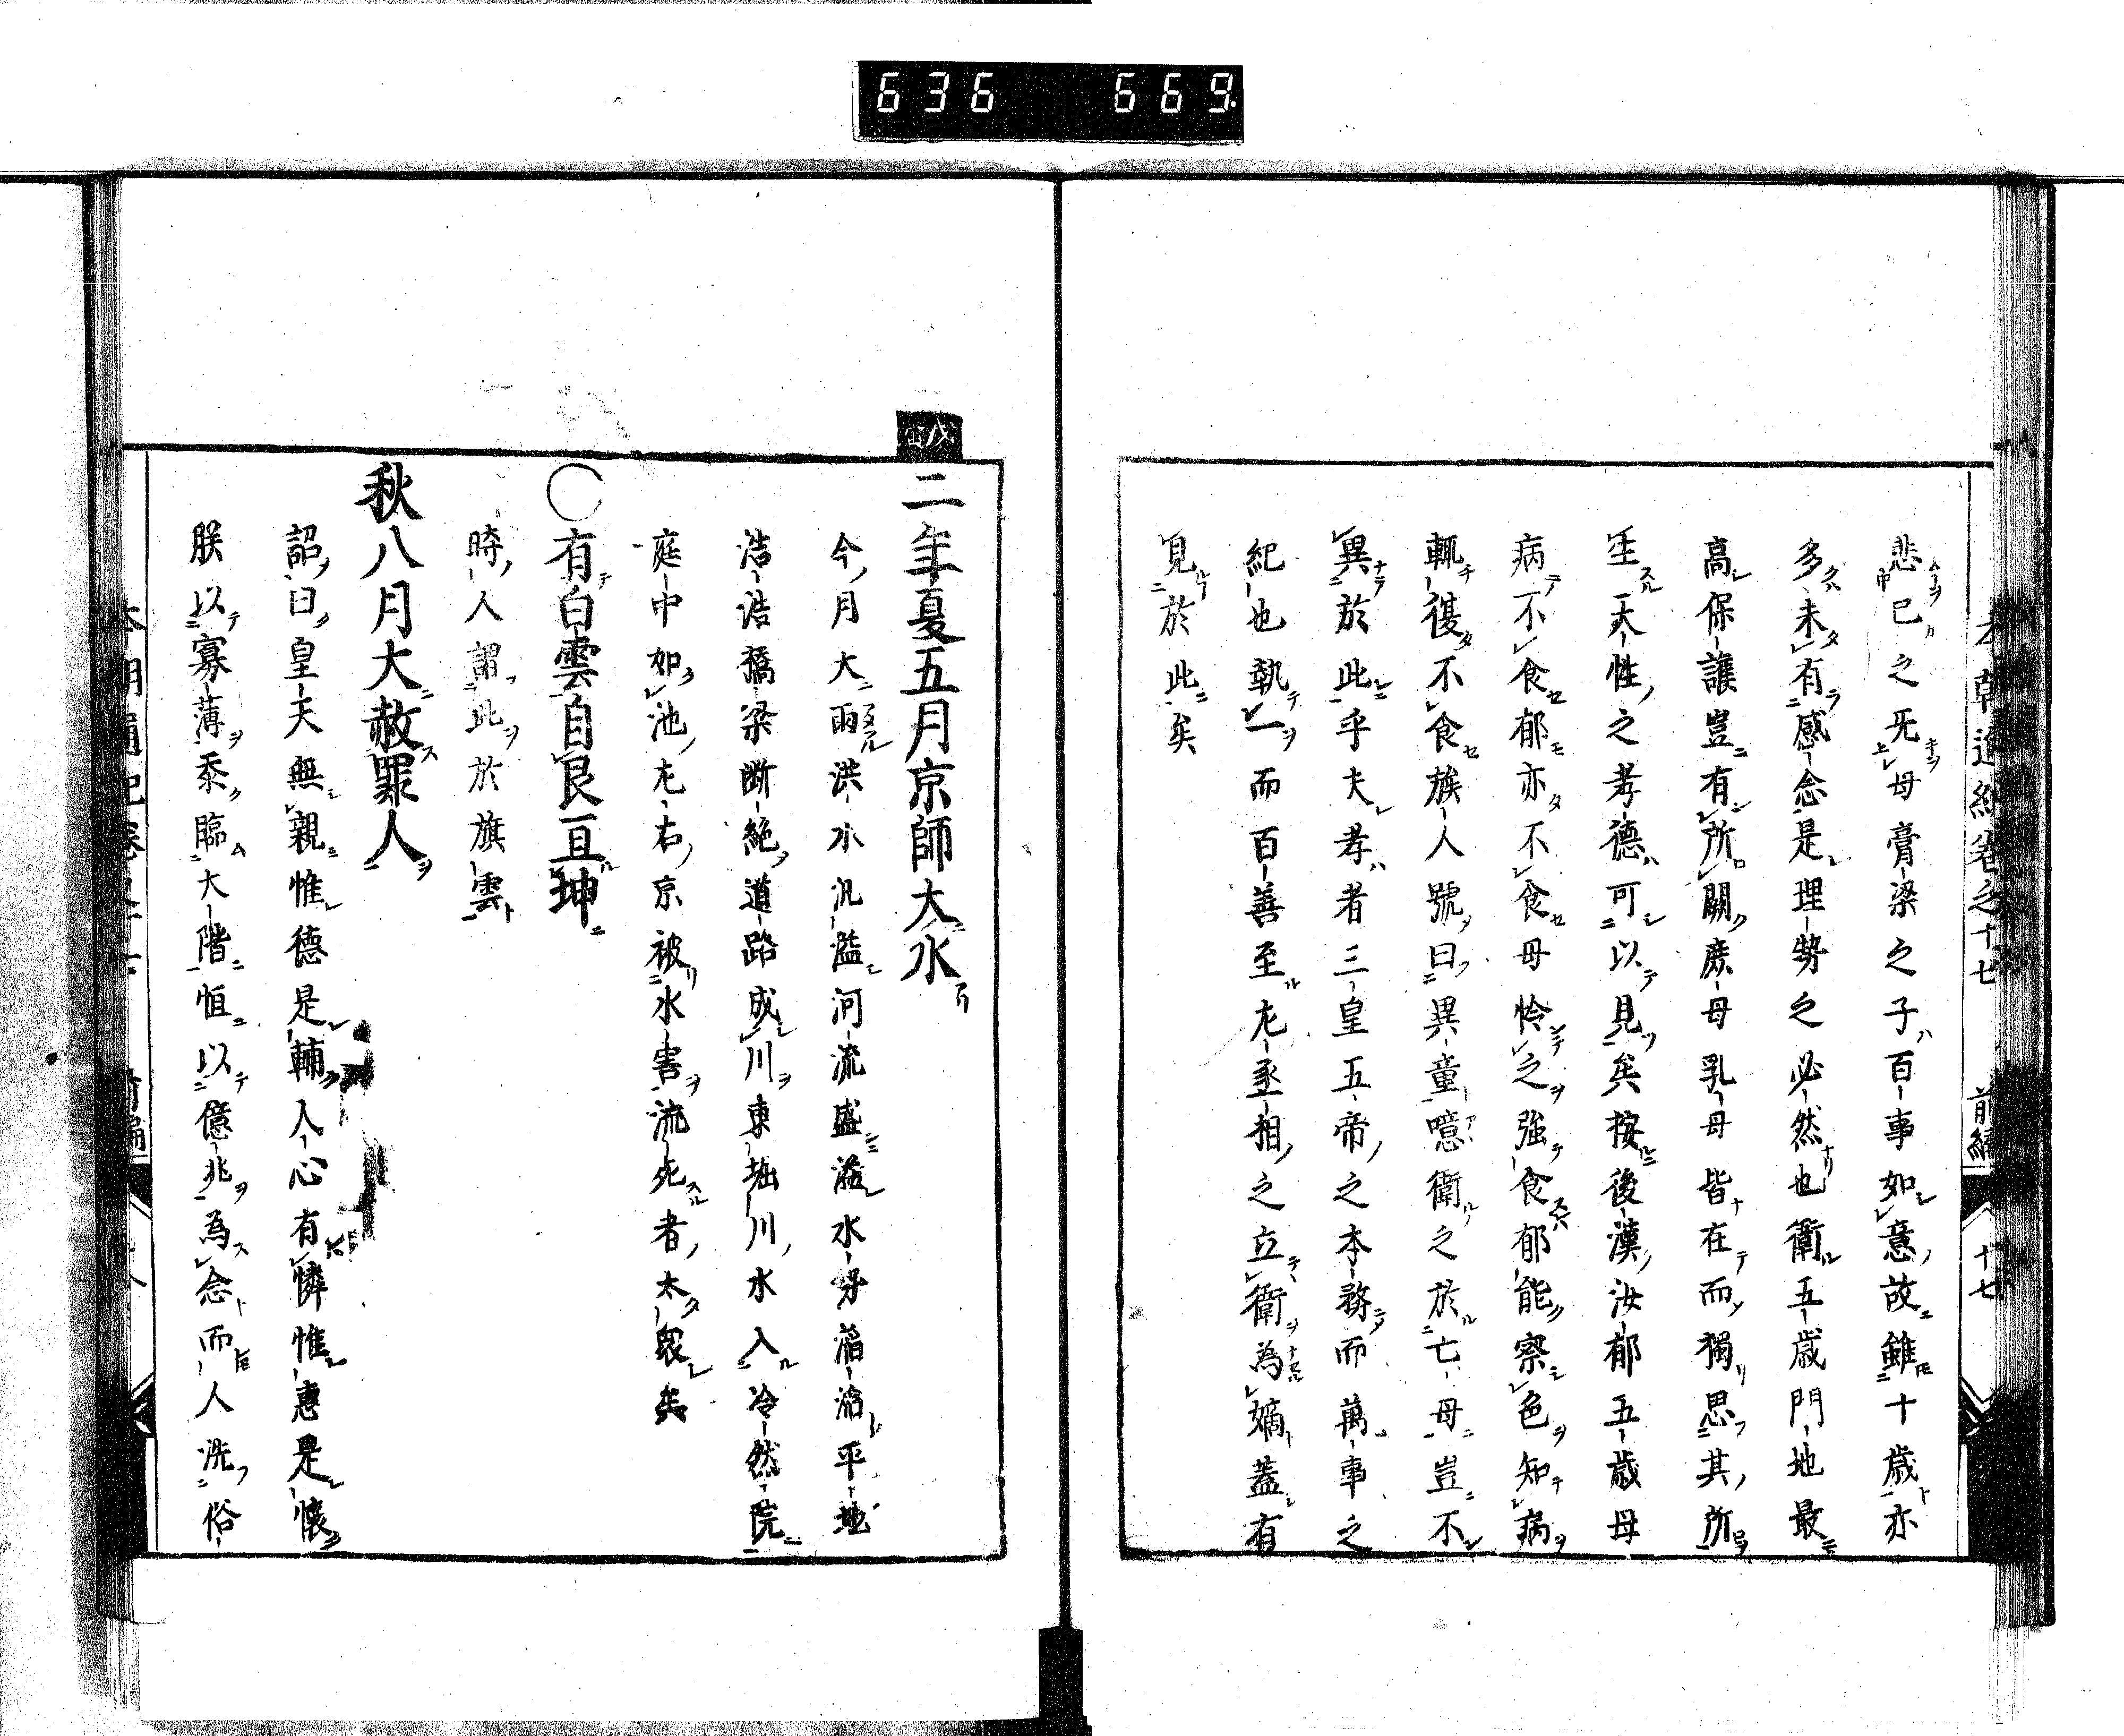 636 669
本朝通紀卷之十七 前編 十七
悲已之无母膏梁之子百事如意故雖十歳亦
多未有感念是理勢之必然也衞五歳門地最
高保護豈有所闕庶母乳母皆在而獨思其所
生天性之孝德可以見矣按後漢汝郁五歳母
病不食郁亦不食母怜之強食郁能察色知病
輒復不食族人號曰異童噫衞之於亡母豈不
異於此乎夫孝者三皇五帝之本務而萬事之
紀也執一而百善至左丞相之立衞為嫡蓋有
見於此矣
戊寅
二年夏五月京師大水
今月大雨洪水汎濫河流盛溢水勢滔滔平地
浩浩橋梁断絶道路成川東堀川水入冷然院
庭中如池左右京被水害流死者太衆矣
○有白雲自艮亘坤
時人謂此於旗雲
秋八月大赦罪人
詔曰皇天無親惟德是輔人心有憐惟惠是懷
朕以寡薄忝臨大階恒以億兆為念而人澆俗